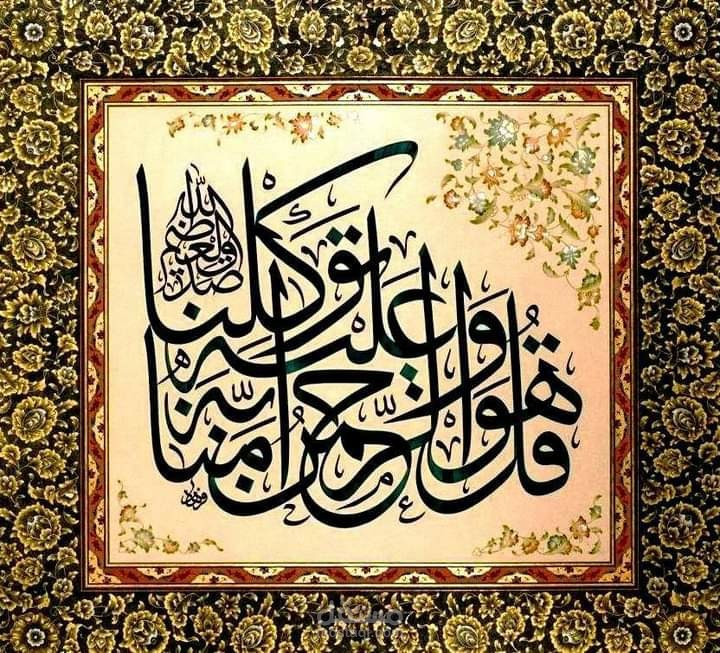 قُلْ هُوَ الرَّحْمٰنُ اٰمَنَّا بِهِ وَعَلَيْهِ تَوَكَّلْنَا
صدق الله العظيم
مستقل
mostaql.com